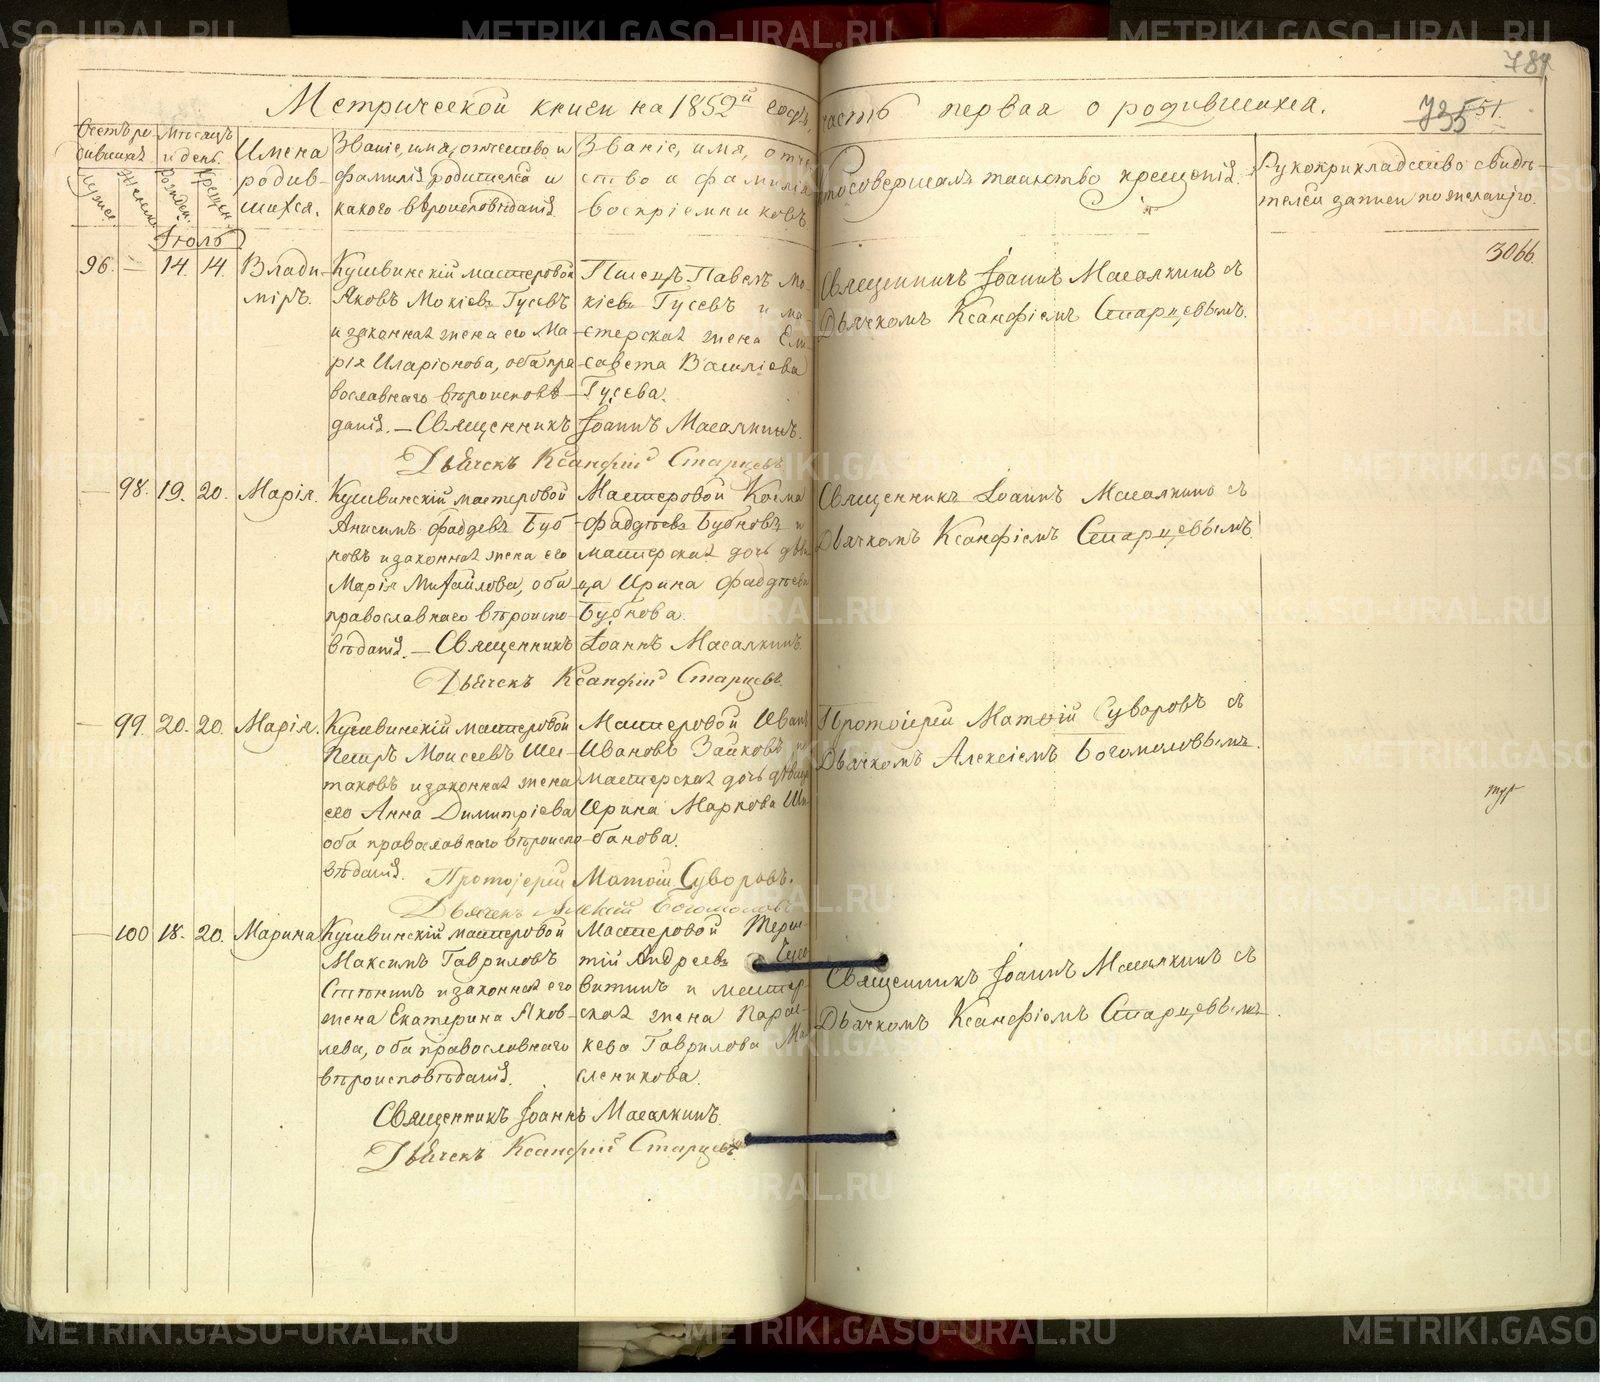 789
Метрической книги на 1852й годъ, часть первая о родившихся.
735 551.
Счетъ ро-
дившихъ
Мужес.
Женск.
Мѣсяцъ
и день.
Рожден.
Крещен.
Имена
родив-
шихся.
Званіе, имя, отчество и
фамилія родителей и
какого вѣроисповѣданія.
Званіе, имя, отче-
ство и фамилія
воспріемниковъ
Кто совершалъ таинство крещенія.
Рукоприкладство свидѣ-
телей записи по желанію.
Іюль
96. — 14. 14. Влади-
міръ.
Кушвинскій мастеровой
Яковъ Мокіевъ Гусевъ
и законная жена его Ма-
рія Иларіонова, оба пра-
вославнаго вѣроисповѣ-
данія. — Священникъ Іоаннъ Масалкинъ.
Дьячекъ Ксанфій Старцевъ
Писецъ Павелъ Мо-
кіевъ Гусевъ и ма-
стерская жена Ели-
савета Васильева
Гусева.
Священникъ Іоаннъ Масалкинъ съ
Дьячкомъ Ксанфіемъ Старцевымъ.
3066.
— 98. 19. 20. Марія.
Кушвинскій мастеровой
Анисимъ Фадѣевъ Буб-
новъ и законная жена его
Марія Михайлова, оба
православнаго вѣроиспо-
вѣданія. — Священникъ Іоаннъ Масалкинъ.
Дьячекъ Ксанфій Старцевъ.
Мастеровой Косма
Фаддѣевъ Бубновъ и
мастерская дочь дѣви-
ца Ирина Фаддѣева
Бубнова.
Священникъ Іоаннъ Масалкинъ съ
Дьячкомъ Ксанфіемъ Старцевымъ
— 99. 20. 20. Марія.
Кушвинскій мастеровой
Петръ Моисеевъ Шес-
таковъ и законная жена
его Анна Димитріева
оба православнаго вѣроиспо-
вѣданія. Протоіерей Матѳій Суворовъ.
Дьячекъ Алексій Богомоловъ
Мастеровой Иванъ
Ивановъ Зайковъ и
мастерская дочь дѣвица
Ирина Маркова Ши-
банова.
Протоіерей Матѳій Суворовъ съ
Дьячкомъ Алексіемъ Богомоловымъ.
— 100 18. 20. Марина
Кушвинскій мастеровой
Максимъ Гавриловъ
Стѣнинъ и законная его
жена Екатерина Яков-
лева, оба православнаго
вѣроисповѣданія.
Мастеровой Терен-
тій Андреевъ
витинъ и мастер-
ская жена Парас-
кева Гаврилова Ма-
сленикова.
Священникъ Іоаннъ Масалкинъ.
Дьячекъ Ксанфій Старцевъ.
Священникъ Іоаннъ Масалкинъ съ
Дьячкомъ Ксанфіемъ Старцевымъ.
METRIKI.GASO-URAL.RU